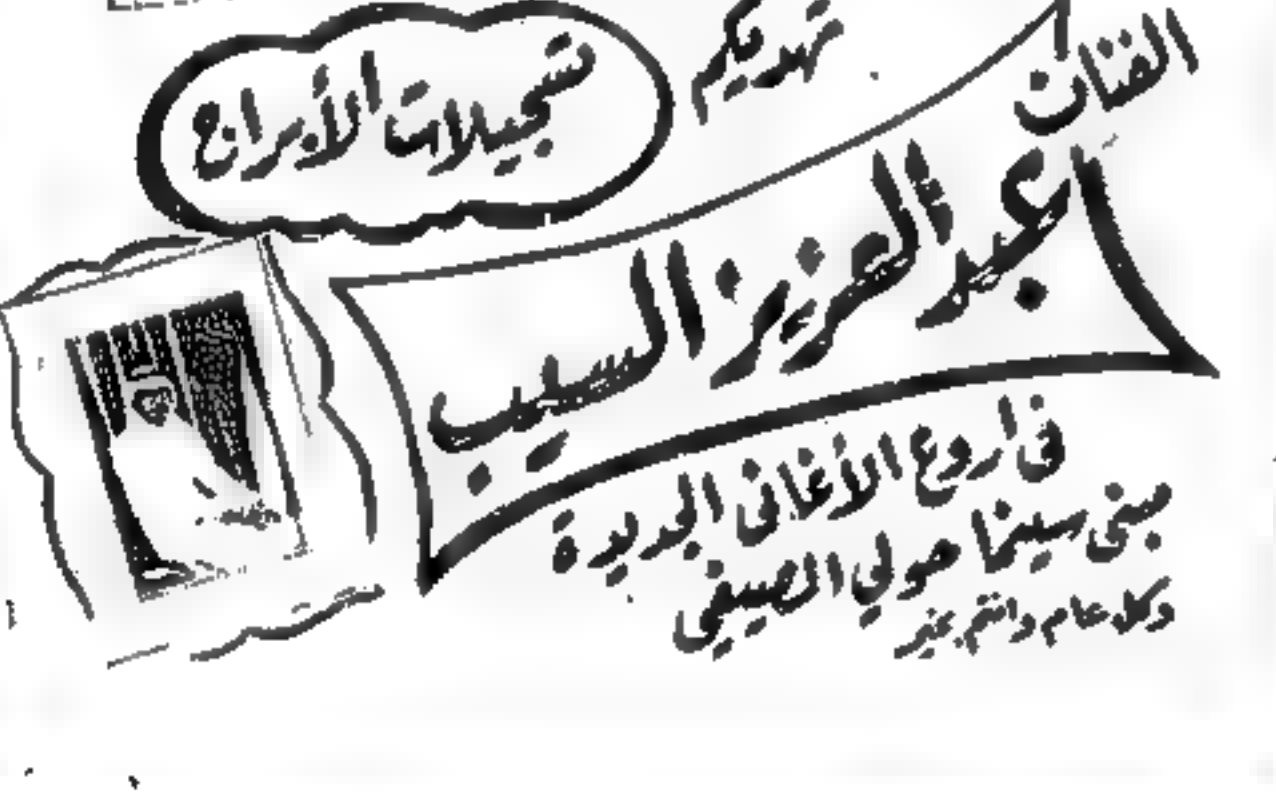 تسجيلات الأبراج
تهديكم
الفنان
عبدالعزيز السيب
في اروع الأغاني الجديدة
مبنى سينما حولي الصيفي
وكل عام وانتم بخير